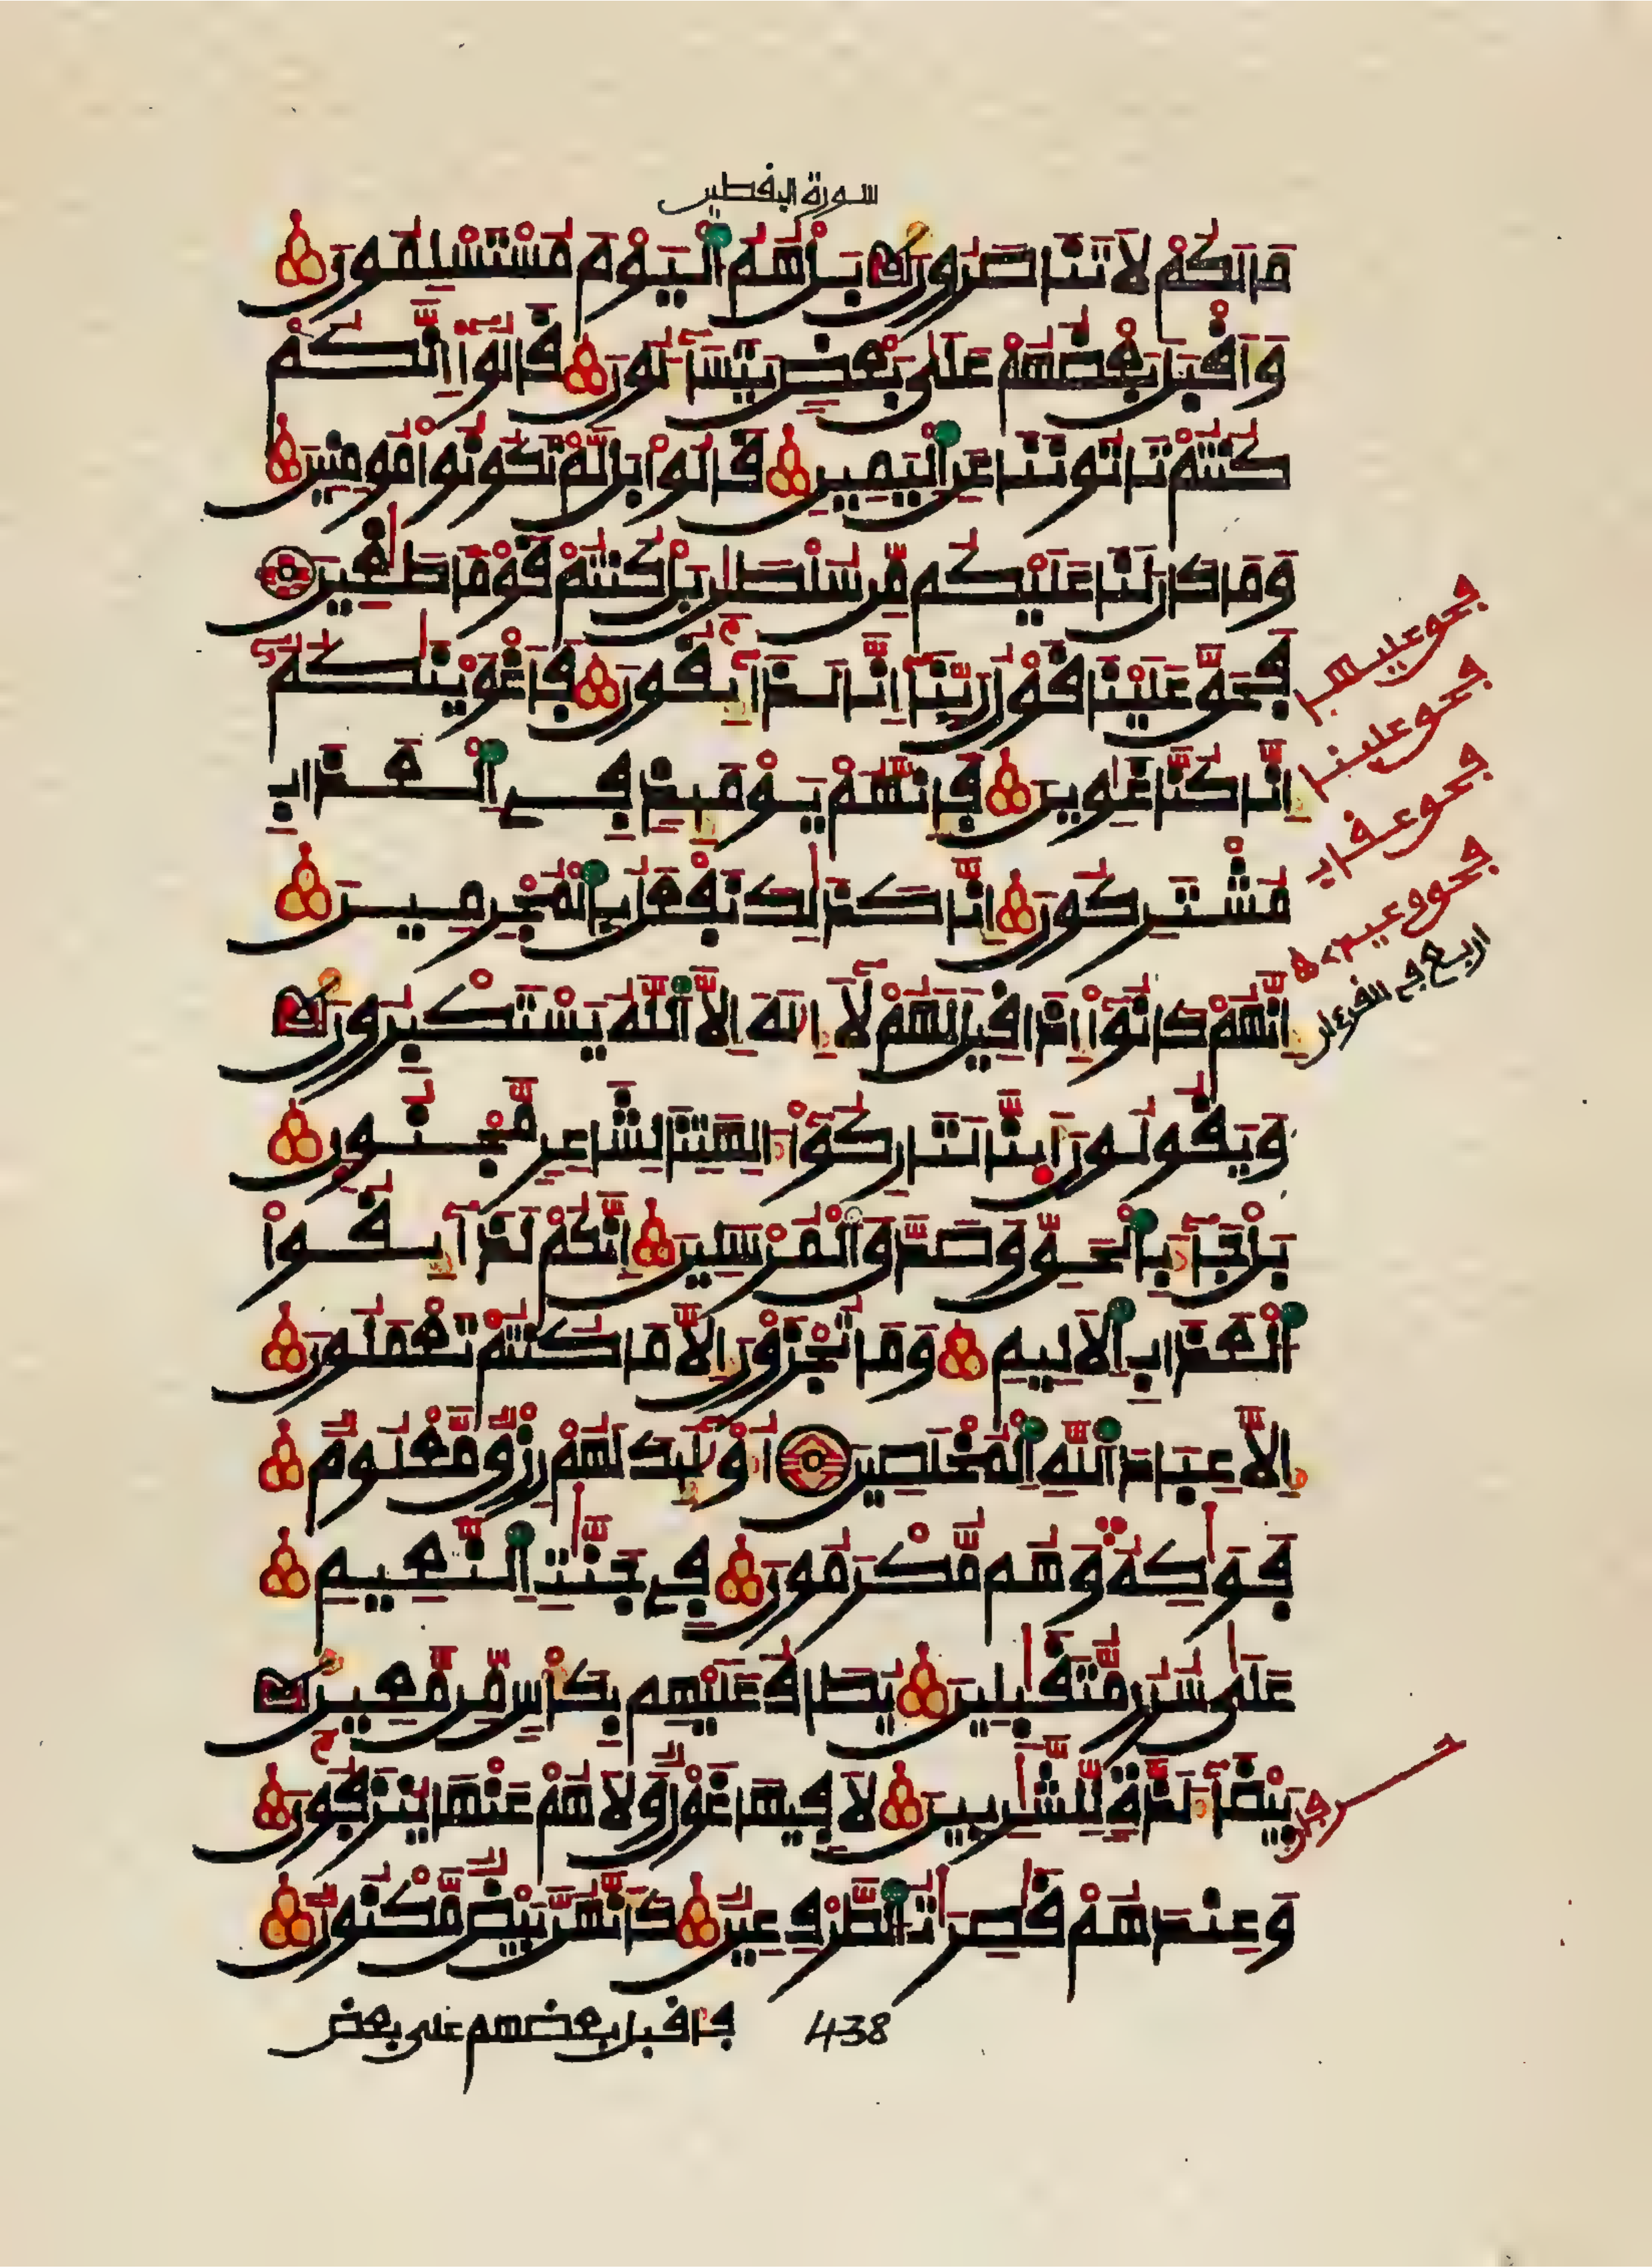 سورة اليقطين
مَا لَكُمْ لَا تَنَاصَرُونَ بَلْ هُمُ الْيَوْمَ مُسْتَسْلِمُونَ
وَأَقْبَلَ بَعْضُهُمْ عَلَىٰ بَعْضٍ يَتَسَآءَلُونَ قَالُوٓا إِنَّكُمْ
كُنتُمْ تَاتُونَنَا عَنِ الْيَمِينِ قَالُوا بَل لَّمْ تَكُونُوا مُومِنِينَ
وَمَا كَانَ لَنَا عَلَيْكُم مِّن سُلْطَٰنٍ بَلْ كُنتُمْ قَوْمًا طَٰغِينَ
فَحَقَّ عَلَيْنَا قَوْلُ رَبِّنَآ إِنَّا لَذَآئِقُونَ فَأَغْوَيْنَٰكُمُۥٓ
إِنَّا كُنَّا غَٰوِينَ فَإِنَّهُمْ يَوْمَئِذٍ فِي الْعَذَابِ
مُشْتَرِكُونَ إِنَّا كَذَٰلِكَ نَفْعَلُ بِالْمُجْرِمِينَ
إِنَّهُمْ كَانُوٓا إِذَا قِيلَ لَهُمْ لَآ إِلَٰهَ إِلَّا اللَّهُ يَسْتَكْبِرُونَ
وَيَقُولُونَ أَئِنَّا لَتَارِكُوٓا ءَالِهَتِنَا لِشَاعِرٍ مَّجْنُونٍ
بَلْ جَآءَ بِالْحَقِّ وَصَدَّقَ الْمُرْسَلِينَ إِنَّكُمْ لَذَآئِقُوا
الْعَذَابِ الْأَلِيمِ وَمَا تُجْزَوْنَ إِلَّا مَا كُنتُمْ تَعْمَلُونَ
إِلَّا عِبَادَ اللَّهِ الْمُخْلَصِينَ أُوْلَٰٓئِكَ لَهُمْ رِزْقٌ مَّعْلُومٌ
فَوَٰكِهُ وَهُم مُّكْرَمُونَ فِي جَنَّٰتِ النَّعِيمِ
عَلَىٰ سُرُرٍ مُّتَقَٰبِلِينَ يُطَافُ عَلَيْهِم بِكَأْسٍ مِّن مَّعِينٍ
بَيْضَآءَ لَذَّةٍ لِّلشَّٰرِبِينَ لَا فِيهَا غَوْلٌ وَلَا هُمْ عَنْهَا يُنزَفُونَ
وَعِندَهُمْ قَٰصِرَٰتُ الطَّرْفِ عِينٌ كَأَنَّهُنَّ بَيْضٌ مَّكْنُونٌ
فأقبل بعضهم على بعض
438
فحق عليها
فحق علينا
فحق عقاب
فحق وعيد
اربع في القرءان